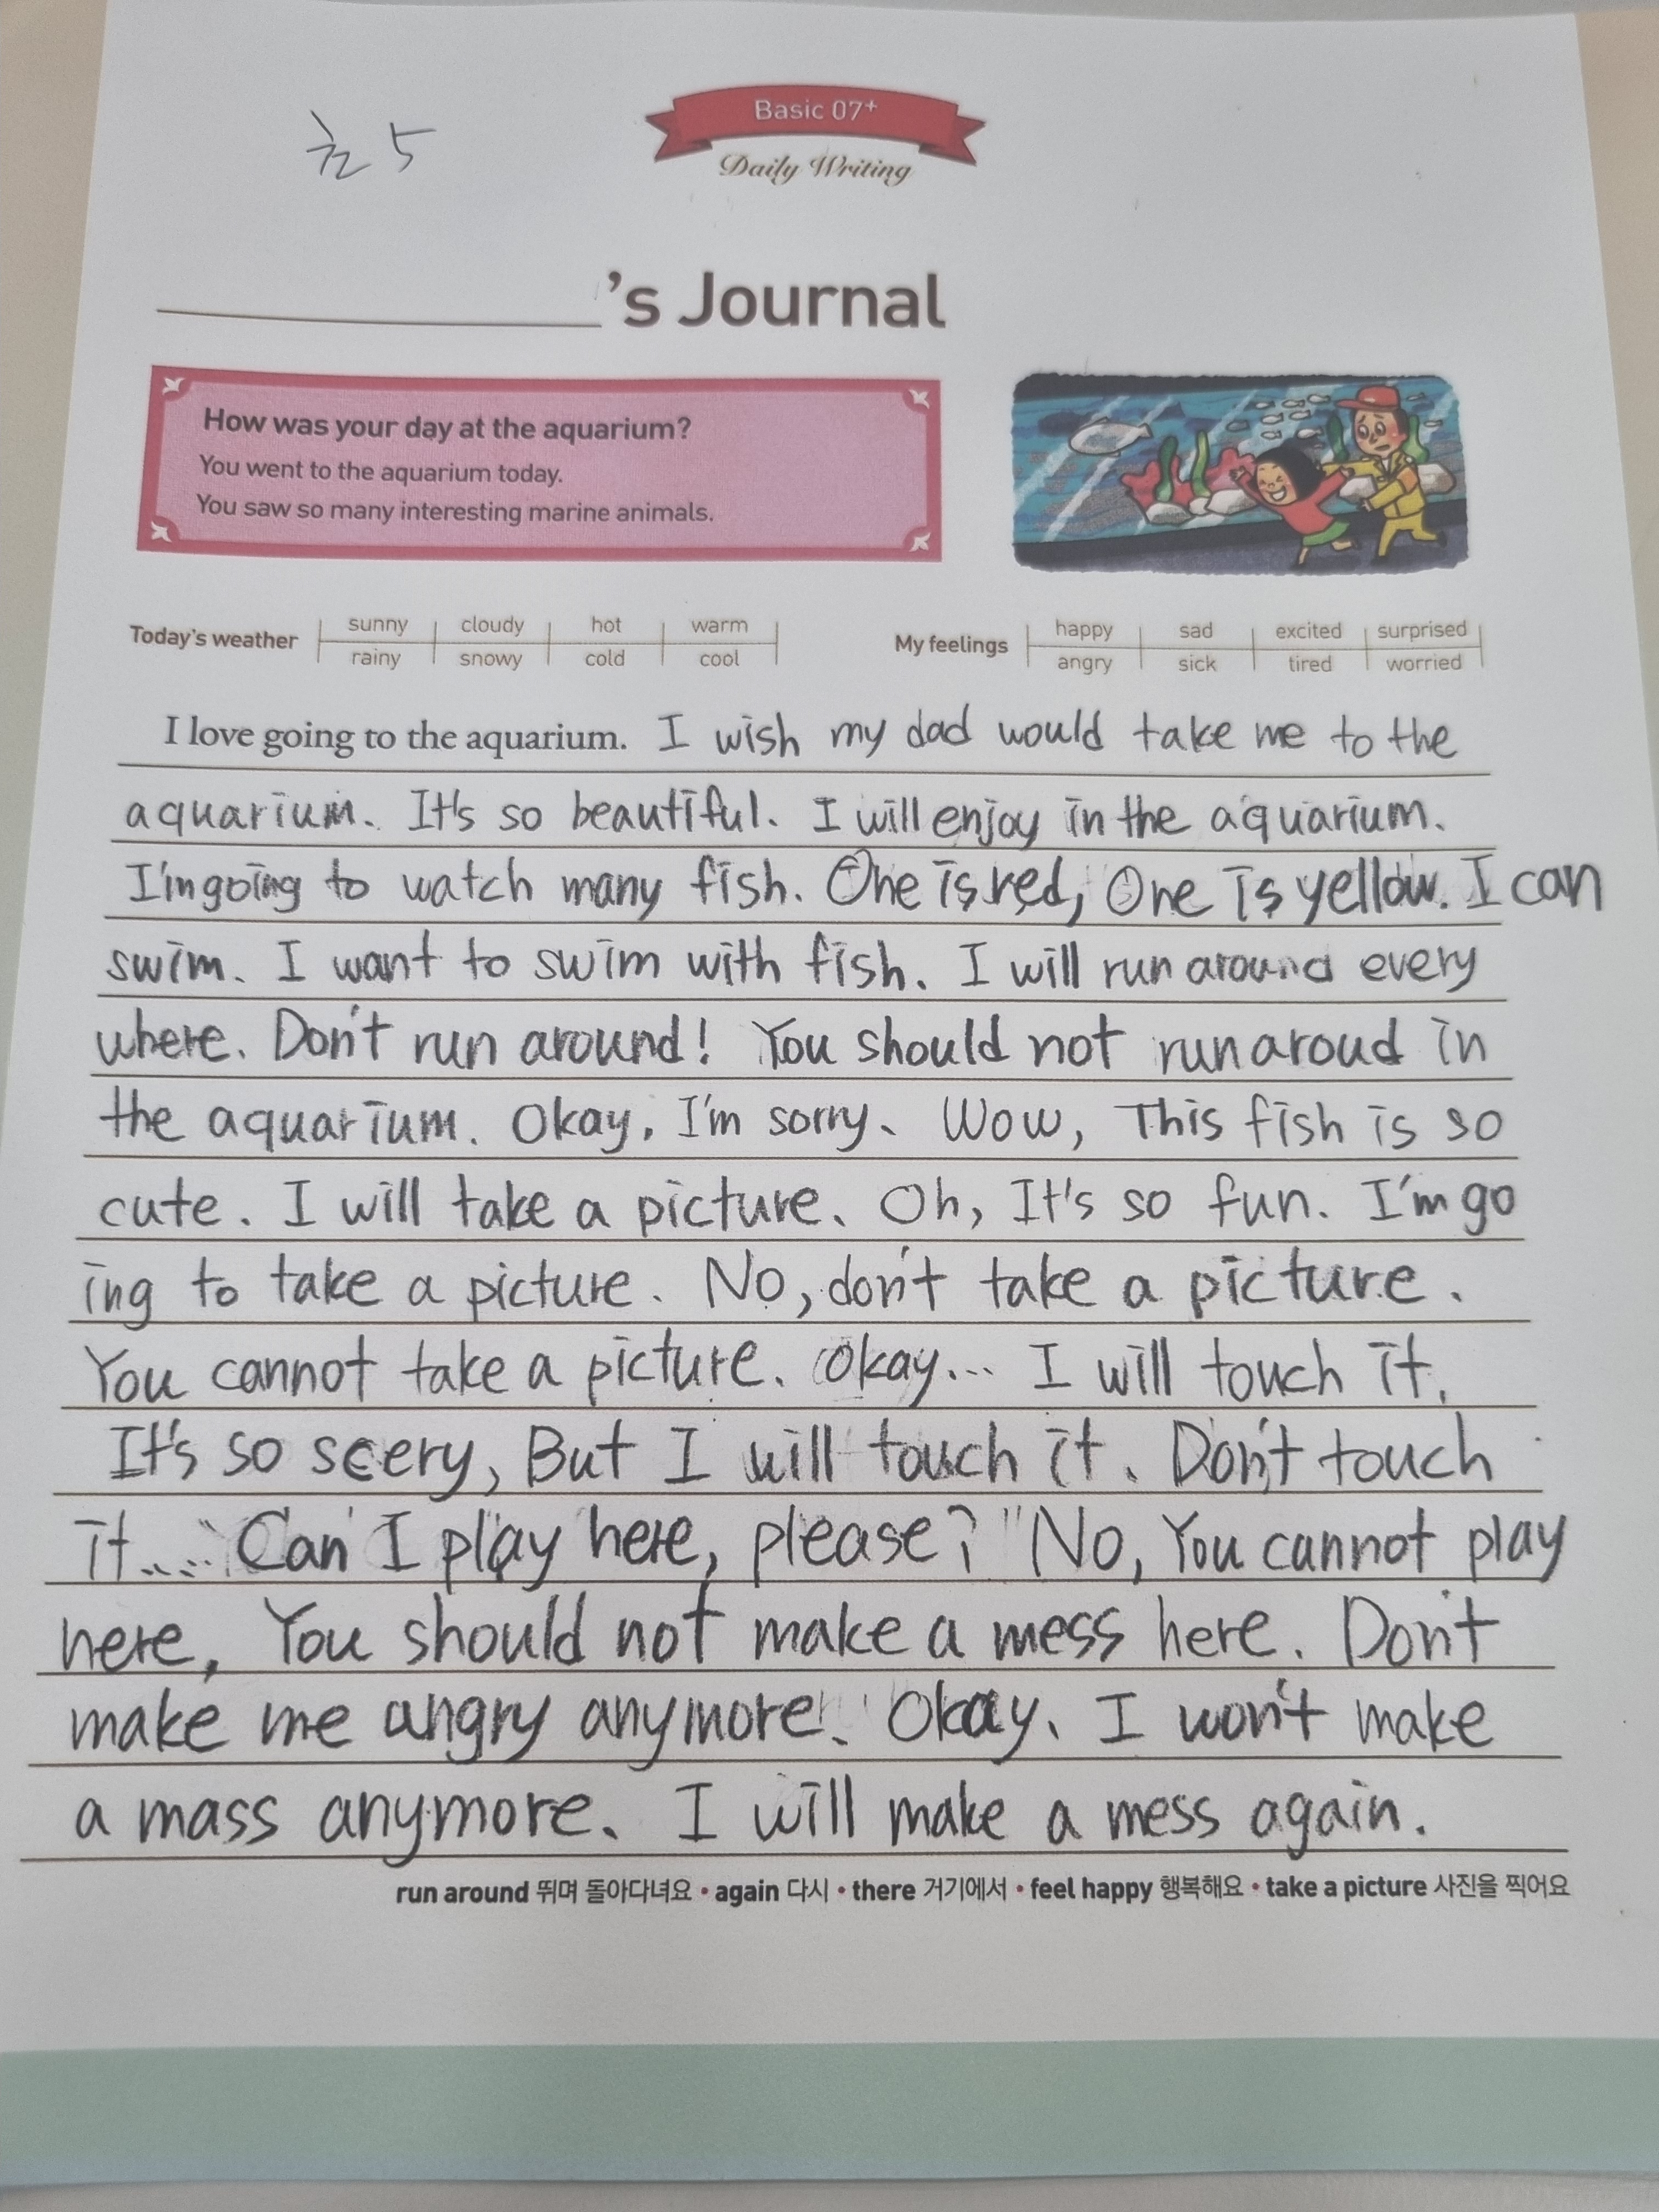 초5
Basic 07+
Daily Writing
's Journal
How was your day at the aquarium?
You went to the aquarium today.
You saw so many interesting marine animals.
Today's weather sunny cloudy hot warm
rainy snowy cold cool
My feelings happy sad excited surprised
angry sick tired worried
I love going to the aquarium. I wish my dad would take me to the
aquarium. It's so beautiful. I will enjoy in the aquarium.
I'm going to watch many fish. One is red, One is yellow. I can
swim. I want to swim with fish. I will run around every
where. Don't run around! You should not run aroud in
the aquarium. Okay. I'm sorry. Wow, This fish is so
cute. I will take a picture. Oh, It's so fun. I'm go
ing to take a picture. No, don't take a picture.
You cannot take a picture. Okay... I will touch it.
It's so scery, But I will touch it. Don't touch
it.... Can I play here, please? "No, You cannot play
here, You should not make a mess here. Don't
make me angry anymore. Okay. I won't make
a mass anymore. I will make a mess again.
run around 뛰며 돌아다녀요 • again 다시 • there 거기에서 • feel happy 행복해요 • take a picture 사진을 찍어요